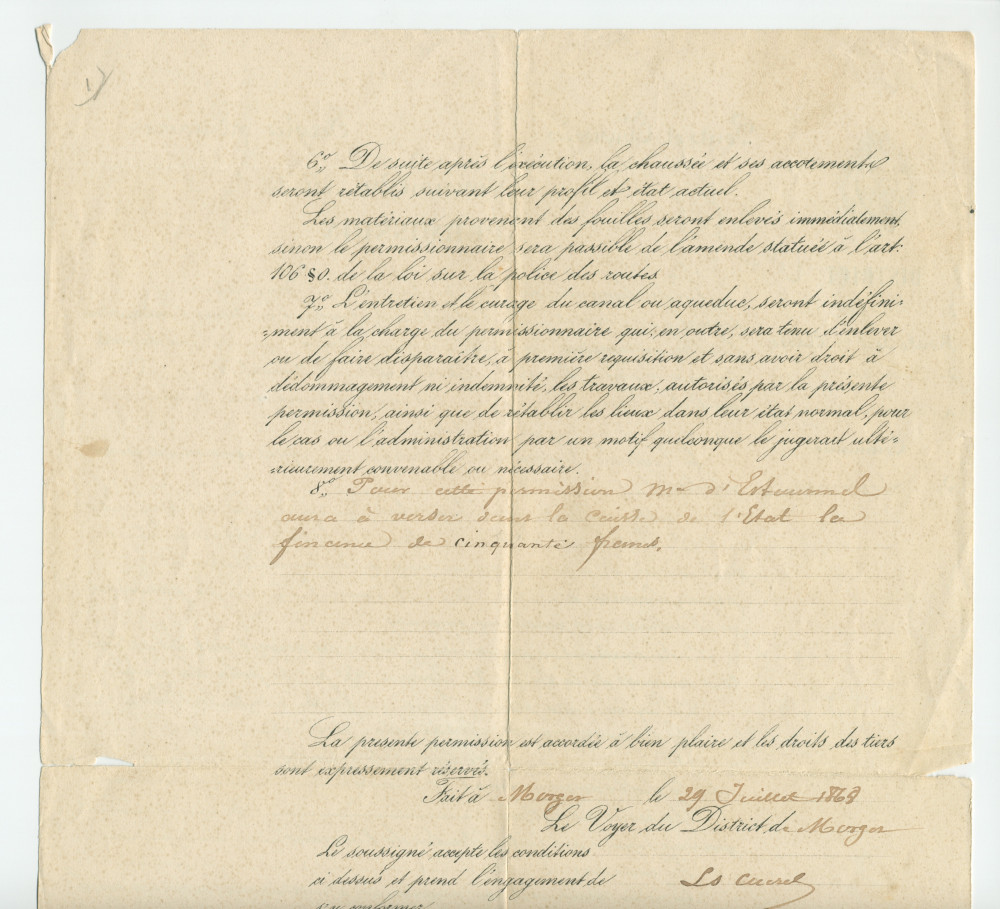 1)
6.° De suite après l'exécution, la chaussée et ses accotements
seront rétablis suivant leur profil et état actuel.
Les matériaux provenant des fouilles seront enlevés immédiatement,
sinon le permissionnaire sera passible de l'amende statuée à l'art:
106 § 0. de la loi sur la police des routes.
7.° L'entretien et le curage du canal ou aqueduc, seront indéfini-
-ment à la charge du permissionnaire qui, en outre, sera tenu d'enlever
ou de faire disparaître, à première réquisition et sans avoir droit à
dédommagement ni indemnité, les travaux, autorisés par la présente
permission, ainsi que de rétablir les lieux dans leur état normal, pour
le cas ou l'administration par un motif quelconque le jugerait ulté-
-rieurement convenable ou nécessaire.
8.° Pour cette permission Mr d'Estourmel
aura à verser dans la caisse de l'Etat la
finance de cinquante francs.
La presente permission est accordée à bien plaire et les droits des tiers
sont expressement réservés.
Fait à Morges le 29 Juillet 1868
Le Voyer du District de Morges
Le soussigné accepte les conditions
ci dessus et prend l'engagement de
Ls
s'y conformer